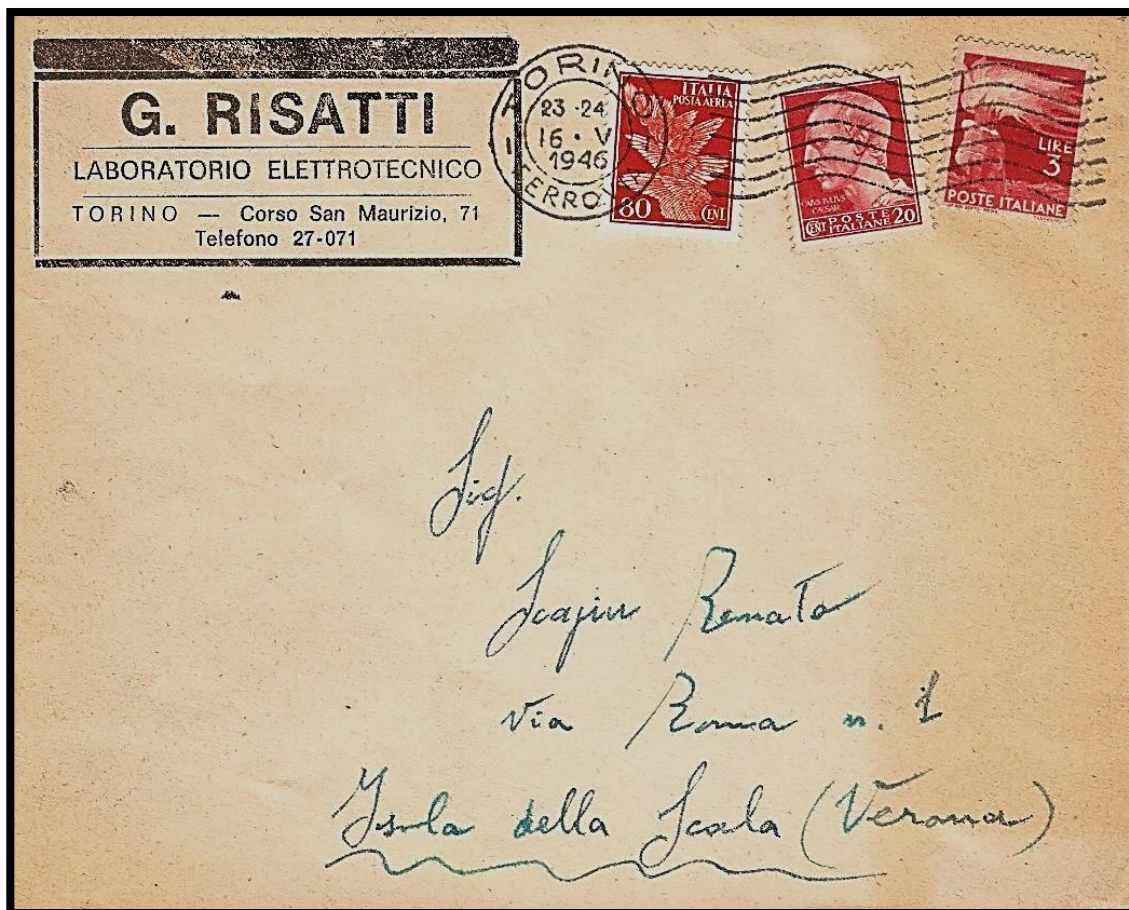 G. RISATTI
LABORATORIO ELETTROTECNICO
TORINO — Corso San Maurizio, 71
Telefono 27-071
TORINO
23-24
16 · V
1946
FERROVIA
ITALIA
POSTA AEREA
80 CENT.
CAIVS IVLIVS
CAESAR
CENT POSTE ITALIANE 20
LIRE
3
POSTE ITALIANE
Sig.
Renato
via Roma n. 1
Isola della Scala (Verona)